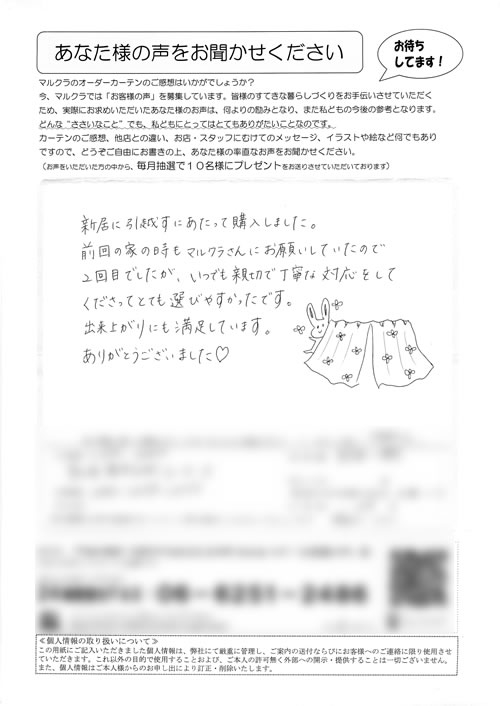 あなた様の声をお聞かせください
お待ち
してます！
マルクラのオーダーカーテンのご感想はいかがでしょうか？
今、マルクラでは「お客様の声」を募集しています。皆様のすてきな暮らしづくりをお手伝いさせていただく
ため、実際にお求めいただいたあなた様のお声は、何よりの励みとなり、また私どもの今後の参考となります。
どんな“ささいなこと”でも、私どもにとってはとてもありがたいことなのです。
カーテンのご感想、他店との違い、お店・スタッフにむけてのメッセージ、イラストや絵など何でもあり
ですので、どうぞご自由にお書きの上、あなた様の率直なお声をお聞かせください。
（お声をいただいた方の中から、毎月抽選で１０名様にプレゼントをお送りさせていただいております）
新居に引越すにあたって購入しました。
前回の家の時もマルクラさんにお願いしていたので
2回目でしたが、いつでも親切で丁寧な対応をして
くださってとても選びやすかったです。
出来上がりにも満足しています。
ありがとうございました♡
≪個人情報の取り扱いについて≫
この用紙にご記入いただきました個人情報は、弊社にて厳重に管理し、ご案内の送付ならびにお客様へのご連絡に限り使用させ
ていただきます。これ以外の目的で使用することおよび、ご本人の許可無く外部への開示・提供することは一切ございません。
また、個人情報はご本人様からのお申し出により訂正・削除いたします。